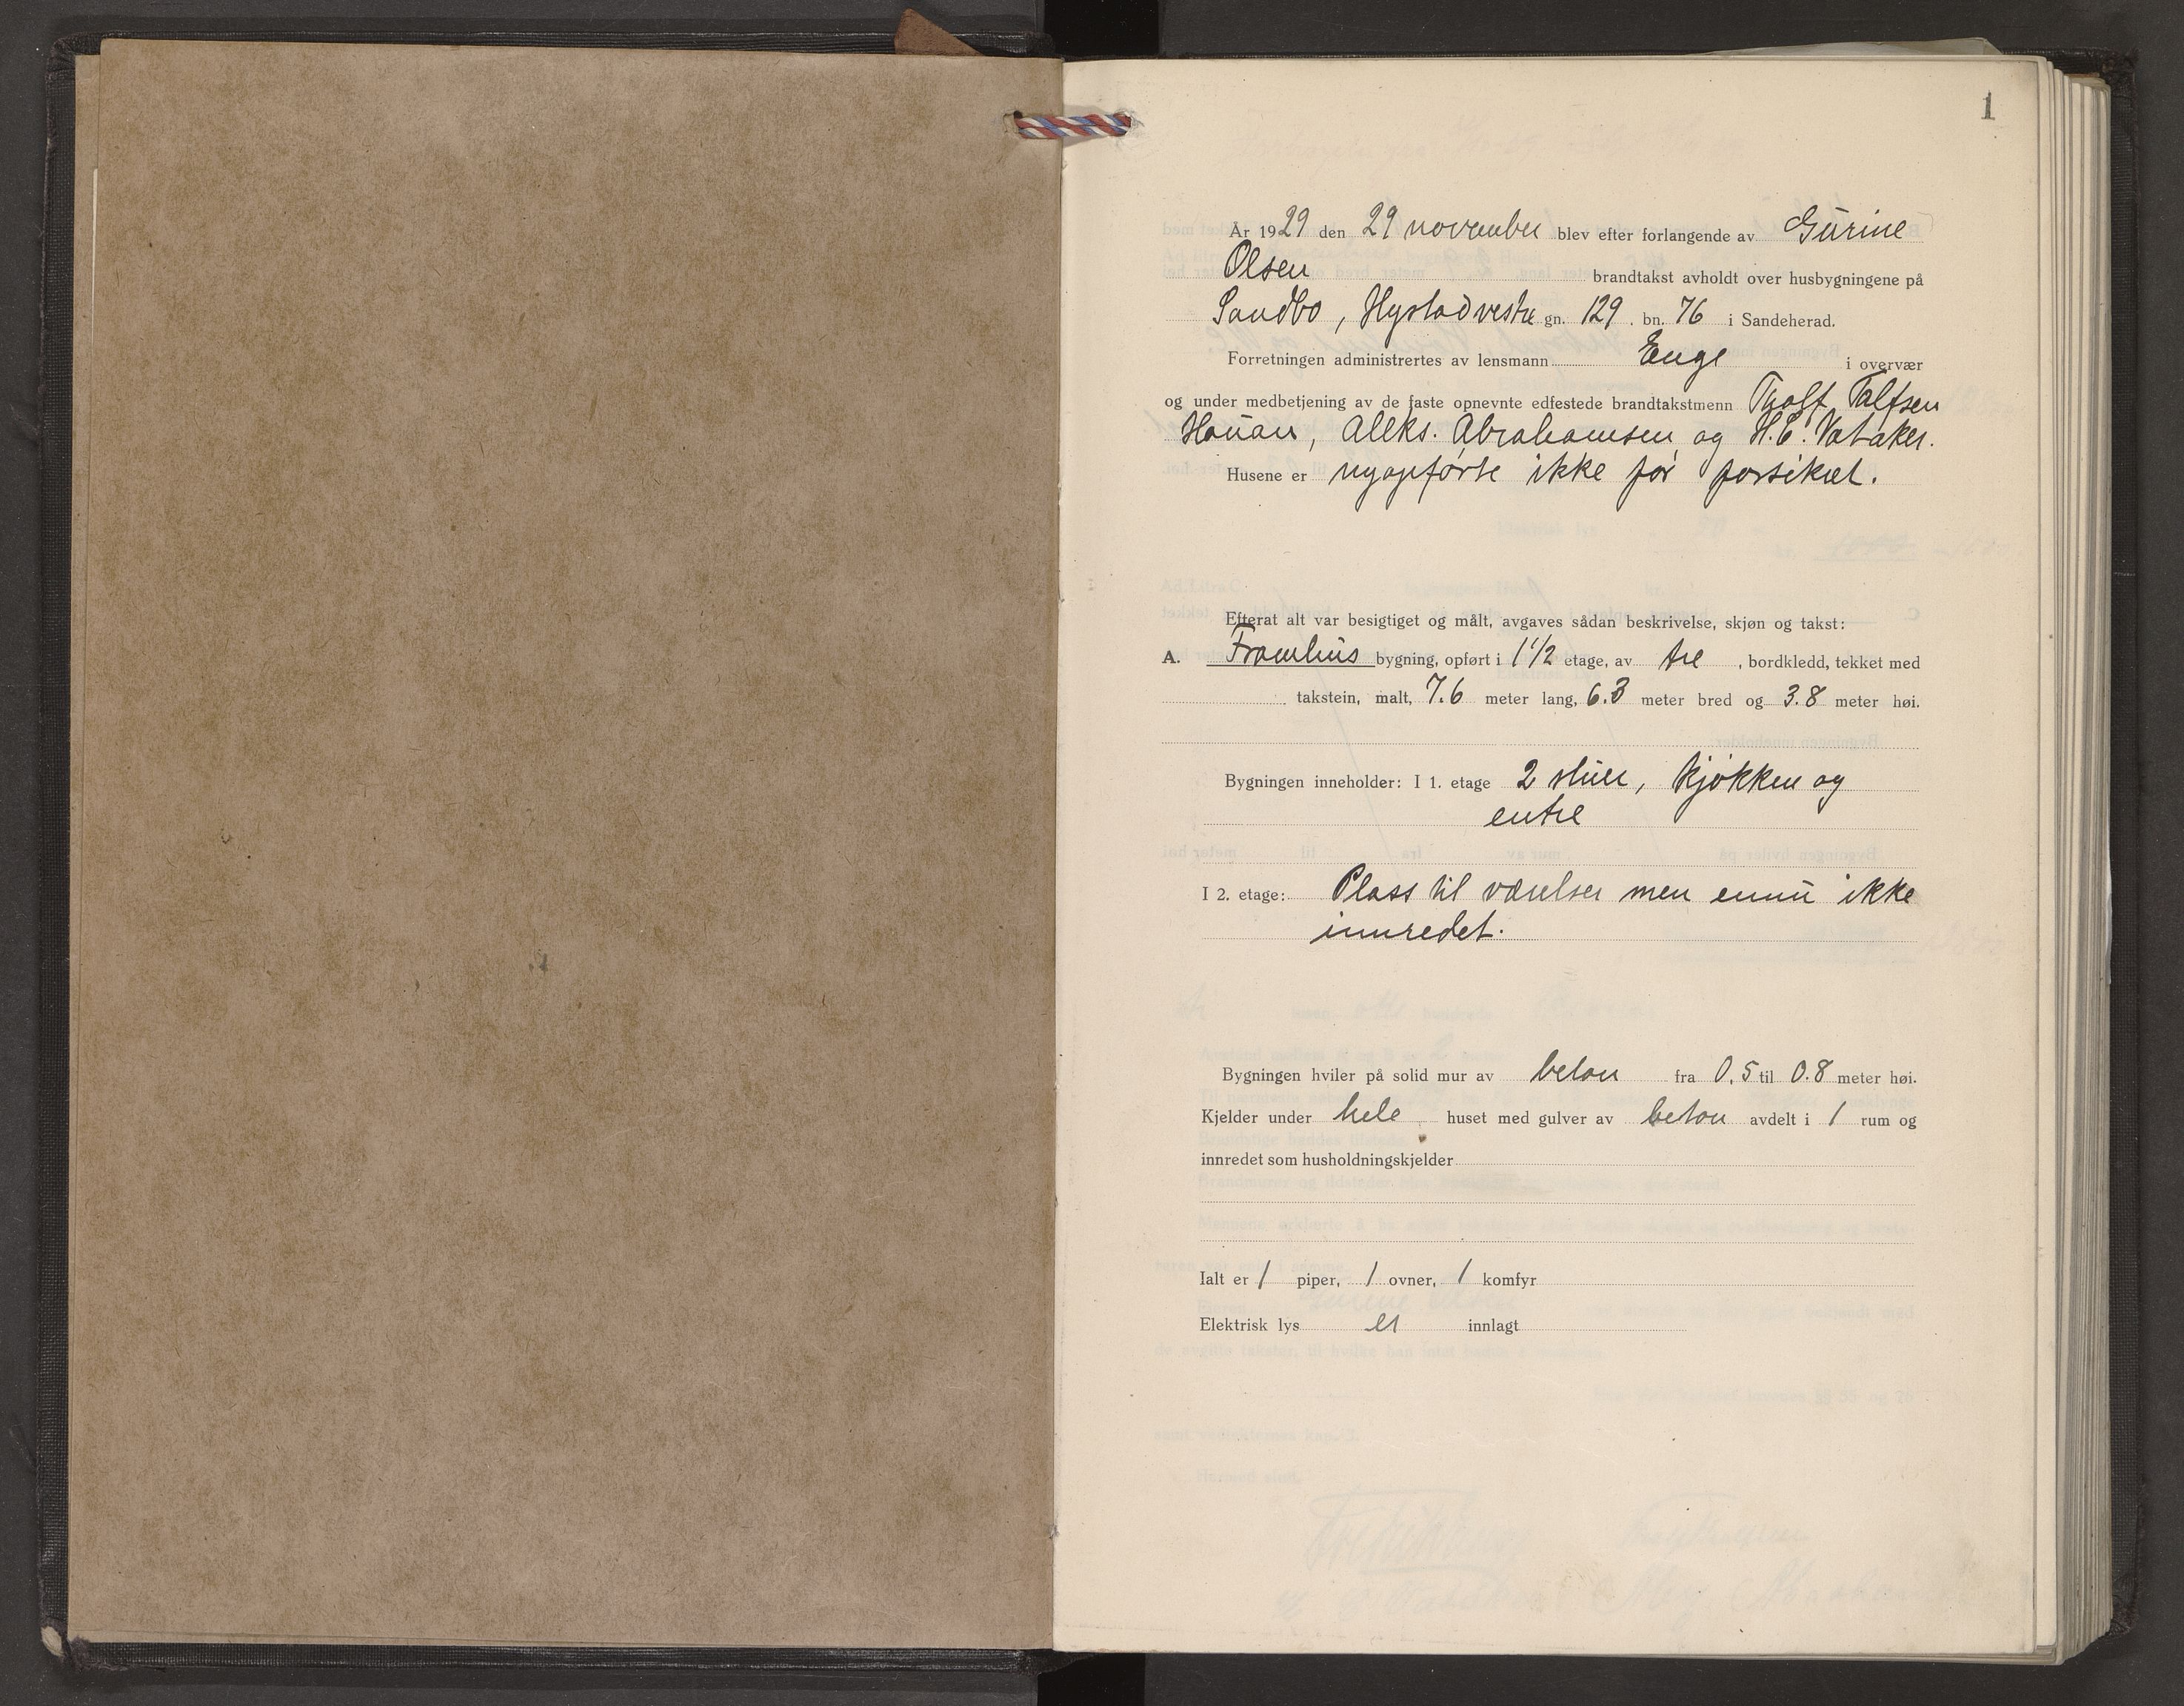 1
År 1929 den 29 november blev efter forlangende av Gurine
Olsen brandtakst avholdt over husbygningene på
Sandbo, Hystad vestre gn. 129. bn. 76 i Sandeherad.
Forretningen administrertes av lensmann Enge i overvær
og under medbetjening av de faste opnevnte edfestede brandtakstmenn Tholf Talfsen
Hauan, Aleks. Abrahamsen og H. E. Vataker.
Husene er nyopførte ikke før forsikret.
Efterat alt var besigtiget og målt, avgaves sådan beskrivelse, skjøn og takst:
A. Framhus bygning, opført i 1 1/2 etage, av tre, bordkledd, tekket med
takstein, malt, 7.6 meter lang, 6.3 meter bred og 3.8 meter høi.
Bygningen inneholder: I 1. etage 2 stuer, kjøkken og
entre
I 2. etage: Plass til værelser men ennu ikke
innredet.
Bygningen hviler på solid mur av beton fra 0.5 til 0.8 meter høi.
Kjelder under hele huset med gulver av beton avdelt i 1 rum og
innredet som husholdningskjelder
Ialt er 1 piper, 1 ovner, 1 komfyr
Elektrisk lys er innlagt